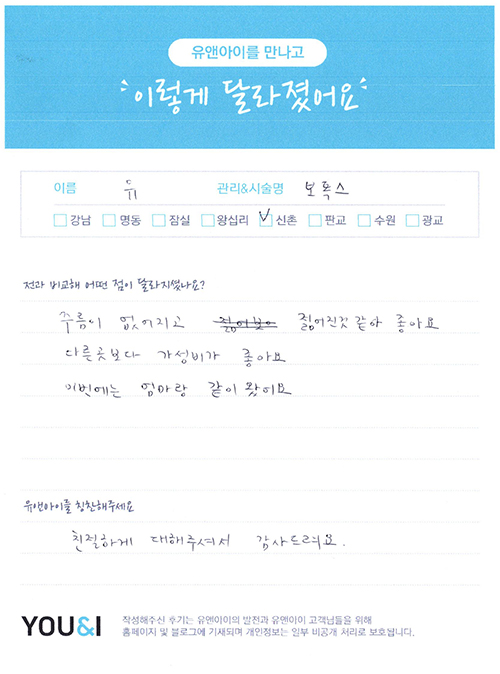 유앤아이를 만나고
이렇게 달라졌어요
이름 유 관리&시술명 보톡스
강남 명동 잠실 왕십리 신촌 판교 수원 광교
전과 비교해 어떤 점이 달라지셨나요?
주름이 없어지고 젊어보이 젊어진것 같아 좋아요
다른곳보다 가성비가 좋아요
이번에는 엄마랑 같이 왔어요
유앤아이를 칭찬해주세요
친절하게 대해주셔서 감사드려요.
YOU&I 작성해주신 후기는 유앤아이의 발전과 유앤아이 고객님들을 위해
홈페이지 및 블로그에 기재되며 개인정보는 일부 비공개 처리로 보호됩니다.